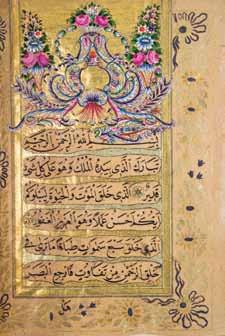 بِسْمِ اللهِ الرَّحْمٰنِ الرَّحِيمِ
تَبَارَكَ الَّذِى بِيَدِهِ الْمُلْكُ وَهُوَ عَلٰى كُلِّ شَىْءٍ
قَدِيرٌ الَّذِى خَلَقَ الْمَوْتَ وَالْحَيٰوةَ لِيَبْلُوَكُمْ
اَيُّكُمْ اَحْسَنُ عَمَلًا وَهُوَ الْعَزِيزُ الْغَفُورُ
الَّذِى خَلَقَ سَبْعَ سَمٰوَاتٍ طِبَاقًا مَا تَرٰى فِى
خَلْقِ الرَّحْمٰنِ مِنْ تَفَاوُتٍ فَارْجِعِ الْبَصَرَ
هَلْ